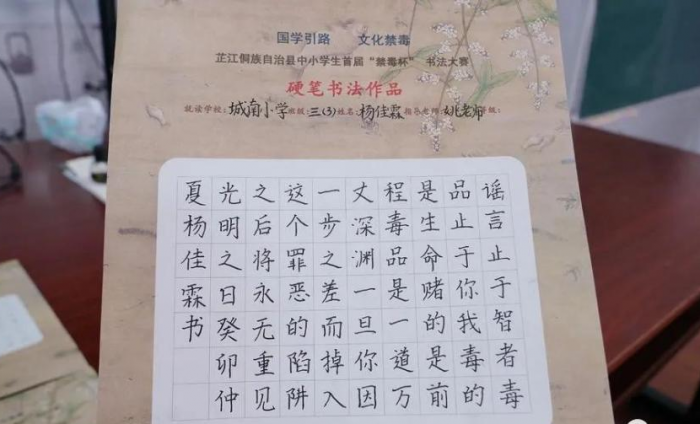 国学引路 文化禁毒
芷江侗族自治县中小学生首届“禁毒杯”书法大赛
硬笔书法作品
就读学校:城南小学 班级:三(3) 姓名:杨佳霖 指导老师:姚老师
谣言止于智者毒
品止于你我毒的
是生命赌的是前
程毒品是一道万
丈深渊一旦你因
一步之差而掉入
这个罪恶的陷阱
之后将永无重见
光明之日癸卯仲
夏杨佳霖书